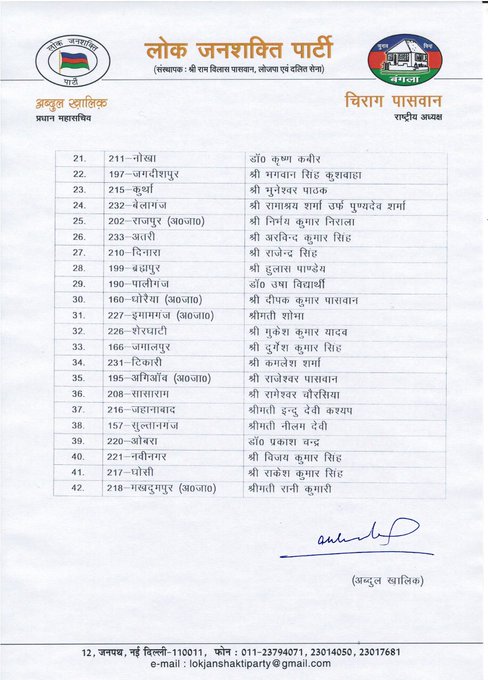 लोक जनशक्ति
पार्टी
लोक जनशक्ति पार्टी
(संस्थापक : श्री राम विलास पासवान, लोजपा एवं दलित सेना)
चुनाव चिन्ह
बंगला
अब्दुल खालिक़
प्रधान महासचिव
चिराग पासवान
राष्ट्रीय अध्यक्ष
21. 211–नोखा डॉ0 कृष्ण कबीर
22. 197–जगदीशपुर श्री भगवान सिंह कुशवाहा
23. 215–कुर्था श्री भुनेश्वर पाठक
24. 232–बेलागंज श्री रामाश्रय शर्मा उर्फ पुण्यदेव शर्मा
25. 202–राजपुर (अ0जा0) श्री निर्भय कुमार निराला
26. 233–अतरी श्री अरविन्द कुमार सिंह
27. 210–दिनारा श्री राजेन्द्र सिंह
28. 199–ब्रह्मपुर श्री हुलास पाण्डेय
29. 190–पालीगंज डॉ0 उषा विद्यार्थी
30. 160–धोरैया (अ0जा0) श्री दीपक कुमार पासवान
31. 227–इमामगंज (अ0जा0) श्रीमती शोभा
32. 226–शेरघाटी श्री मुकेश कुमार यादव
33. 166–जमालपुर श्री दुर्गेश कुमार सिंह
34. 231–टिकारी श्री कमलेश शर्मा
35. 195–अगिआँव (अ0जा0) श्री राजेश्वर पासवान
36. 208–सासाराम श्री रामेश्वर चौरसिया
37. 216–जहानाबाद श्रीमती इन्दु देवी कश्यप
38. 157–सुल्तानगंज श्रीमती नीलम देवी
39. 220–ओबरा डॉ0 प्रकाश चन्द्र
40. 221–नवीनगर श्री विजय कुमार सिंह
41. 217–घोसी श्री राकेश कुमार सिंह
42. 218–मखदुमपुर (अ0जा0) श्रीमती रानी कुमारी
(अब्दुल खालिक)
12, जनपथ, नई दिल्ली-110011, फोन : 011-23794071, 23014050, 23017681
e-mail : lokjanshaktiparty@gmail.com